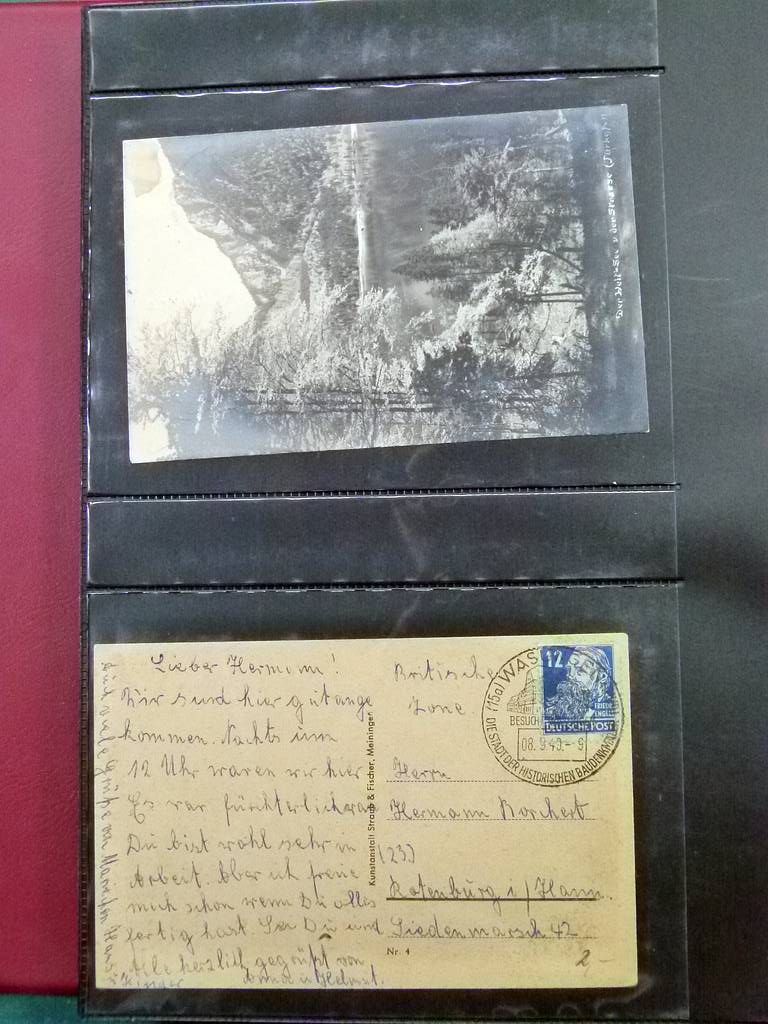 Der Weid-See
Lieber Hermann!
Wir sind hier gut ange
kommen. Nachts um
12 Uhr waren wir hier
Es war fürchterlich
Du bist wohl sehr in
Arbeit. Aber ich freue
mich schon wenn Du alles
fertig hast. Sei Du und
Alle herzlich gegrüßt von
u. Helmut.
Auch viele Grüße von Mariechen Hans
u Kinder
Kunstanstalt Straub & Fischer, Meiningen
Britische
Zone
(15a) WAS
BESUCH
DIE STADT DER HISTORISCHEN BAUDENKMÄLER
08.9.49.-9
12
FRIEDR
ENGELS
DEUTSCHE POST
Herrn
Hermann Borchert
(23)
Rotenburg i/Hann.
Liedenmarsch 42
Nr. 4
2,-